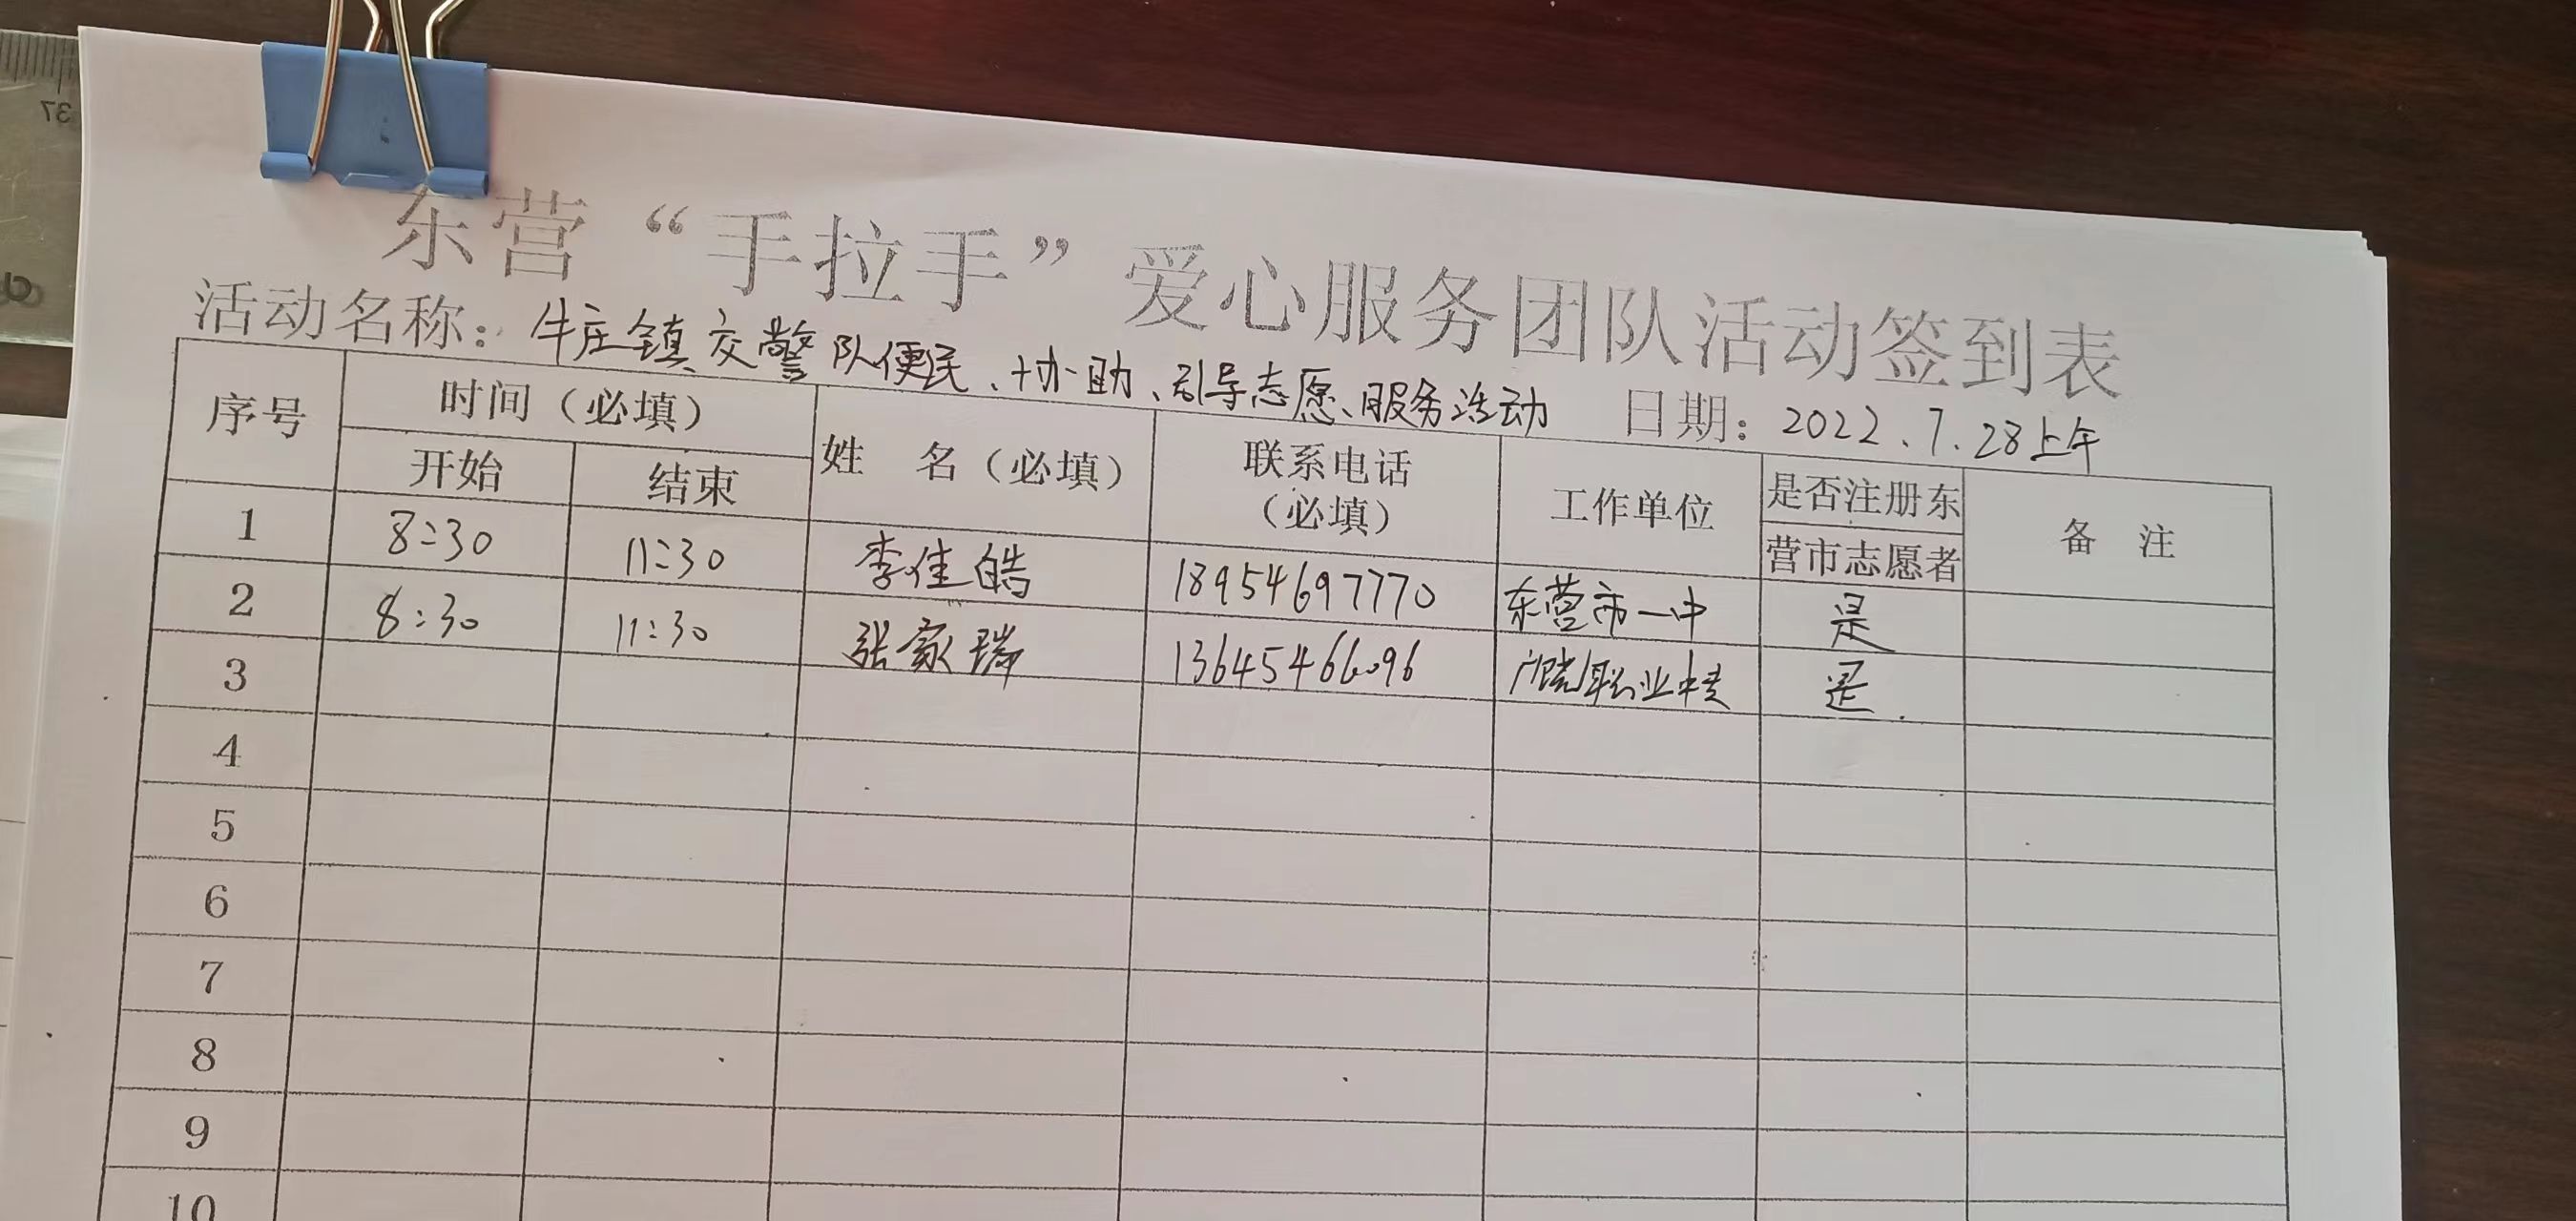 东营“手拉手”爱心服务团队活动签到表
活动名称：牛庄镇交警队便民、协助、引导志愿、服务活动 日期：2022、7、28上午
序号 时间（必填） 姓 名（必填） 联系电话（必填） 工作单位 是否注册东营市志愿者 备 注
开始 结束
1 8:30 11:30 李佳皓 18954697770 东营市一中 是
2 8:30 11:30 张家瑞 13645466096 职业中专 是
3
4
5
6
7
8
9
10
37